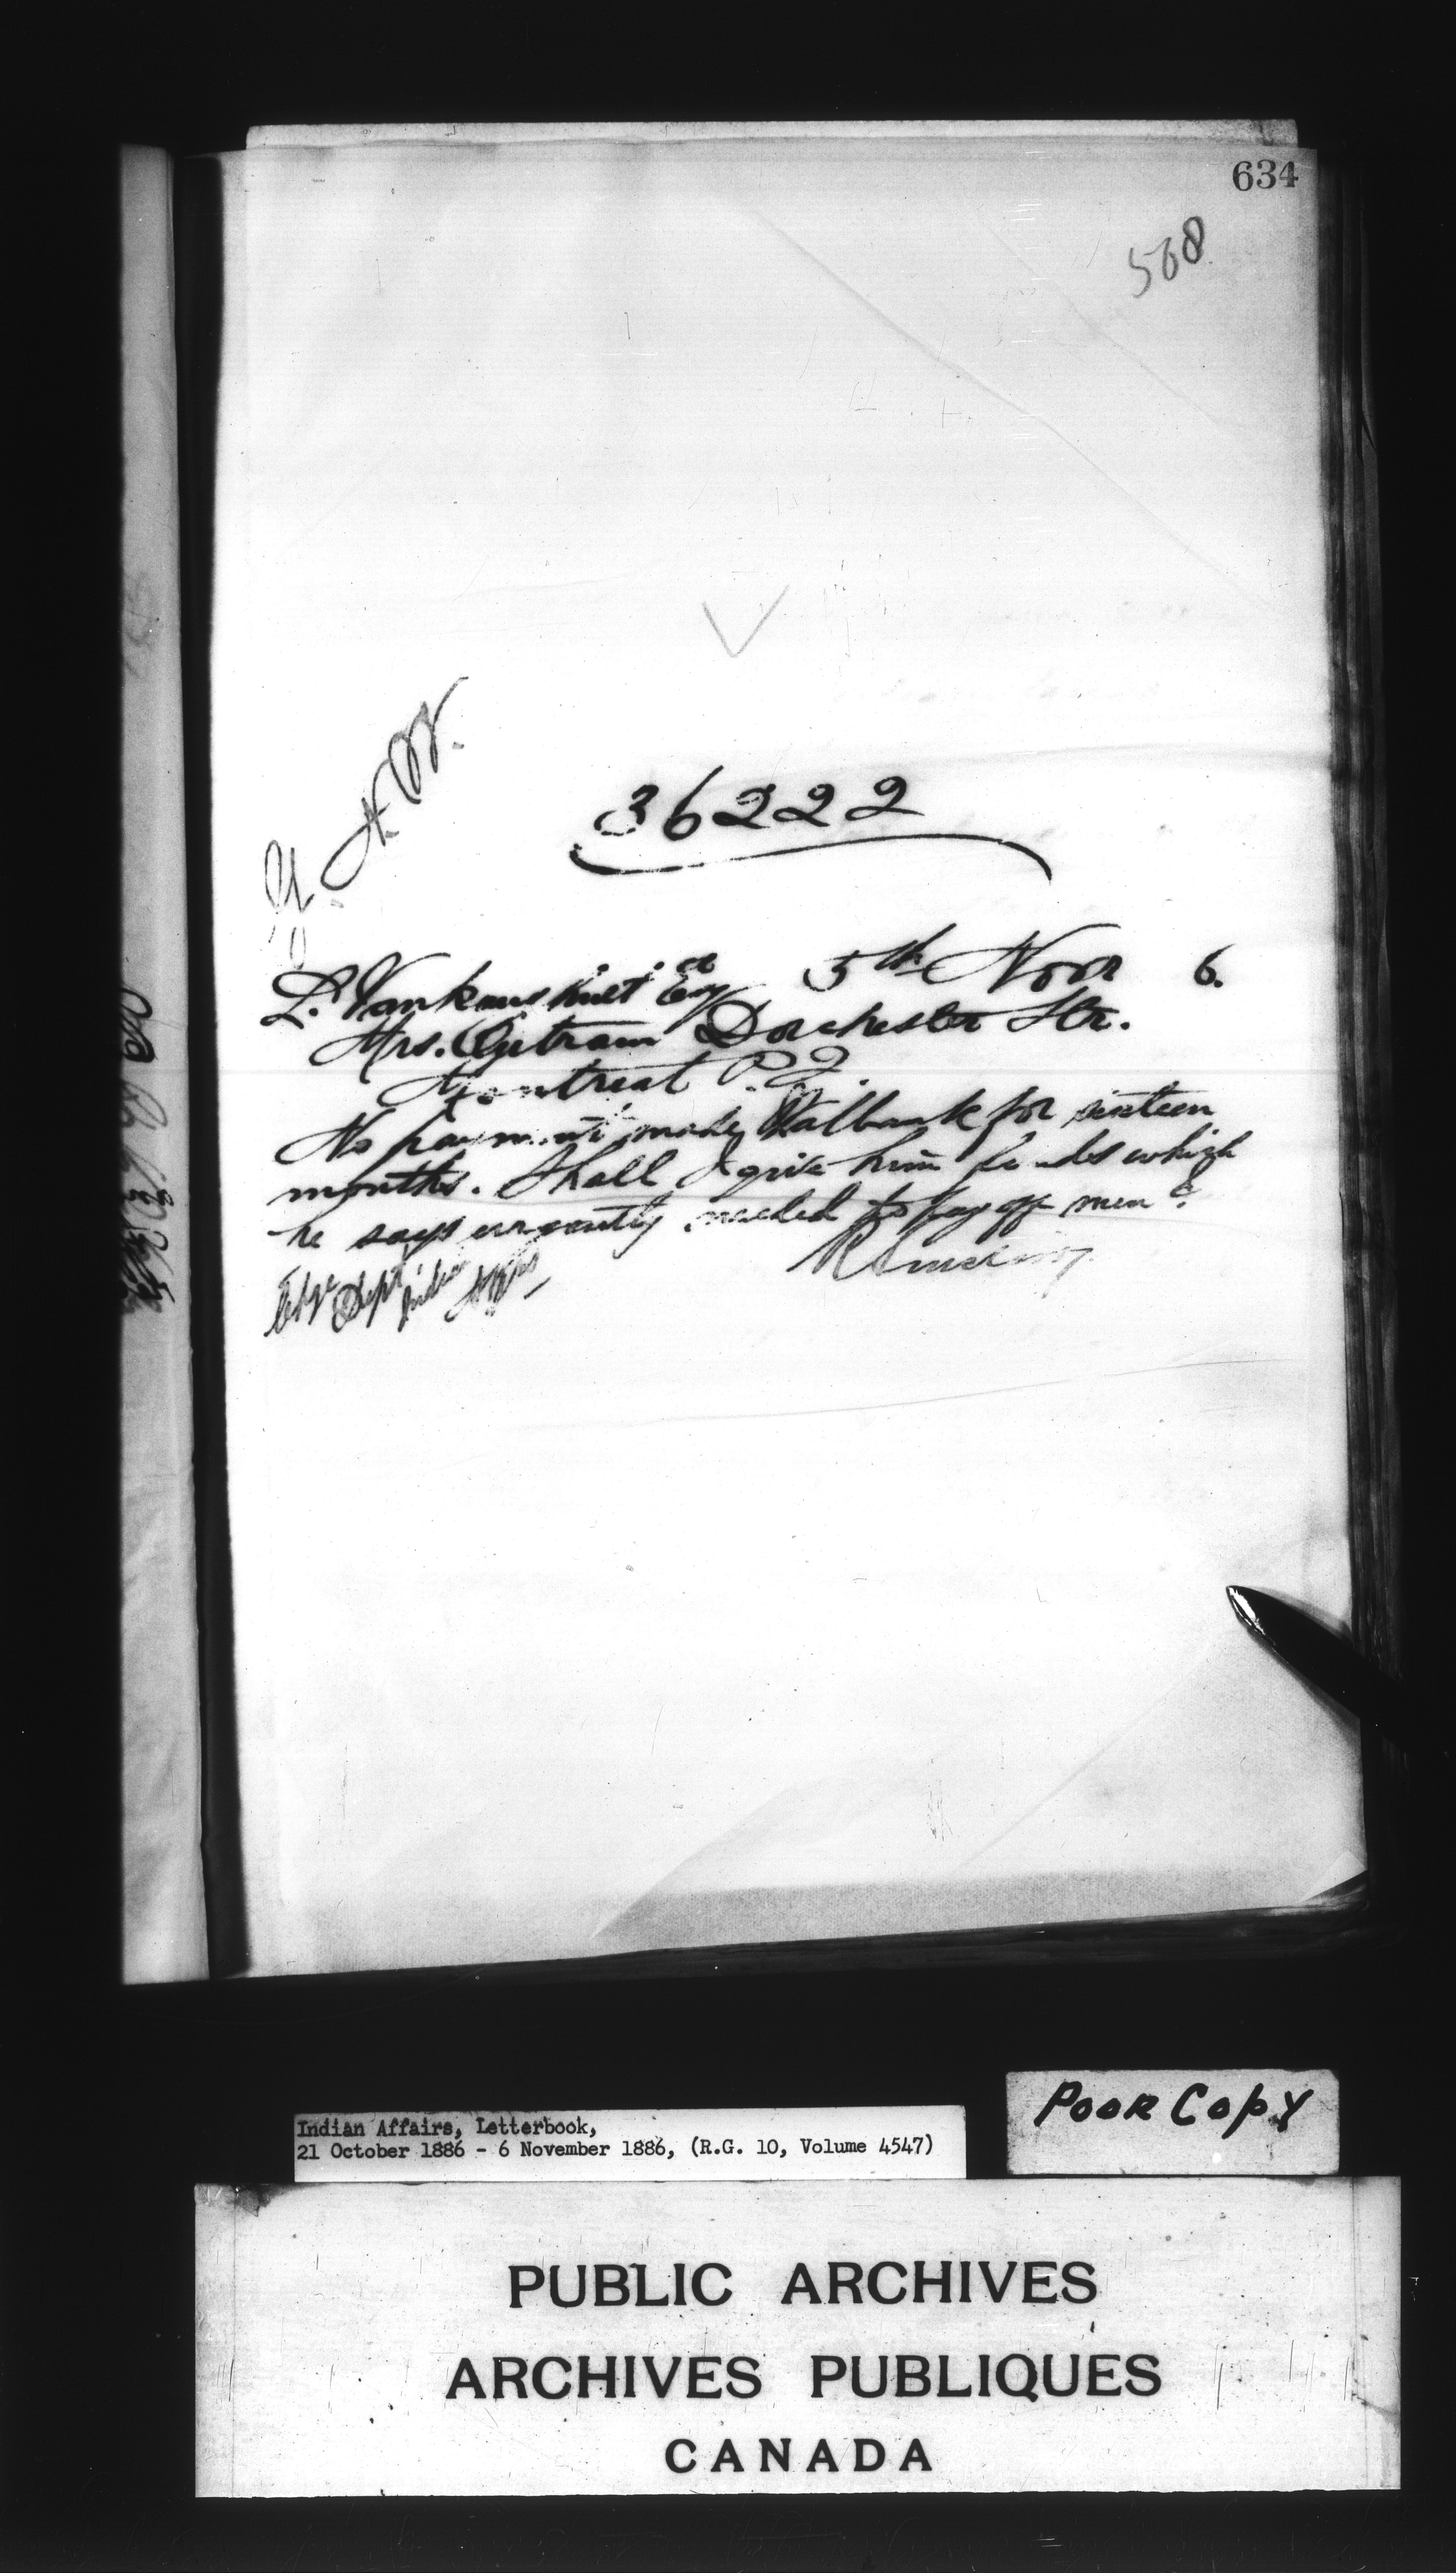 634
508
36222
5th Novr 6.
L. Vankoughnet Esq
Mrs. Dorchester Str.
Montreal P.Q.
No payment made Walbank for sixteen
months. Shall I give him funds which
he says urgently needed to pay off men?
R Sinclair
Chge Dept Indian Affrs
Poor Copy
Indian Affairs, Letterbook,
21 October 1886 - 6 November 1886, (R.G. 10, Volume 4547)
PUBLIC ARCHIVES
ARCHIVES PUBLIQUES
CANADA